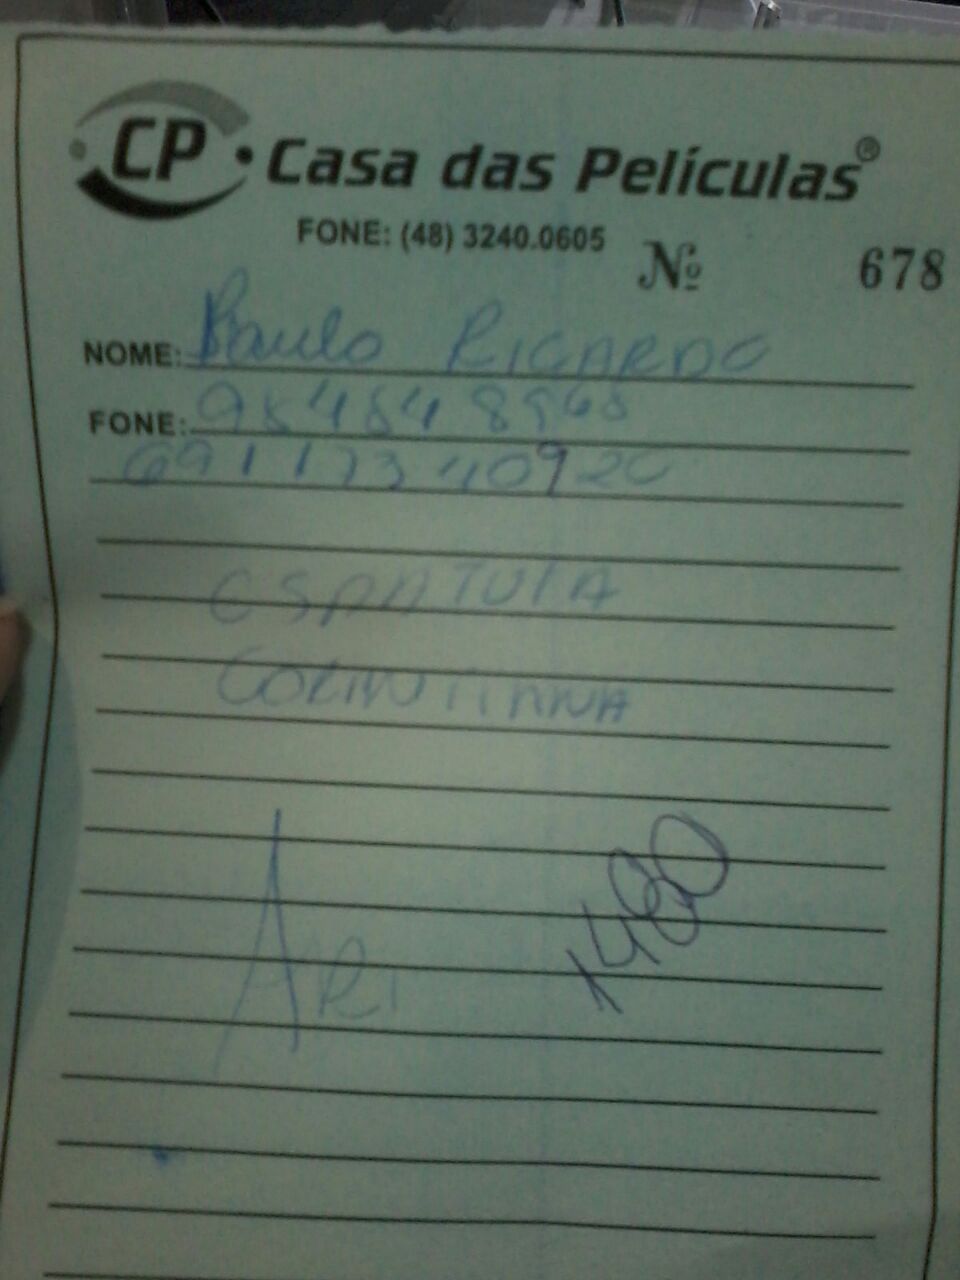 CP Casa das Películas®
FONE: (48) 3240.0605
Nº 678
NOME: Paulo RICARDO
FONE:
ESPATULA
CORINTIANA
ARI
1480